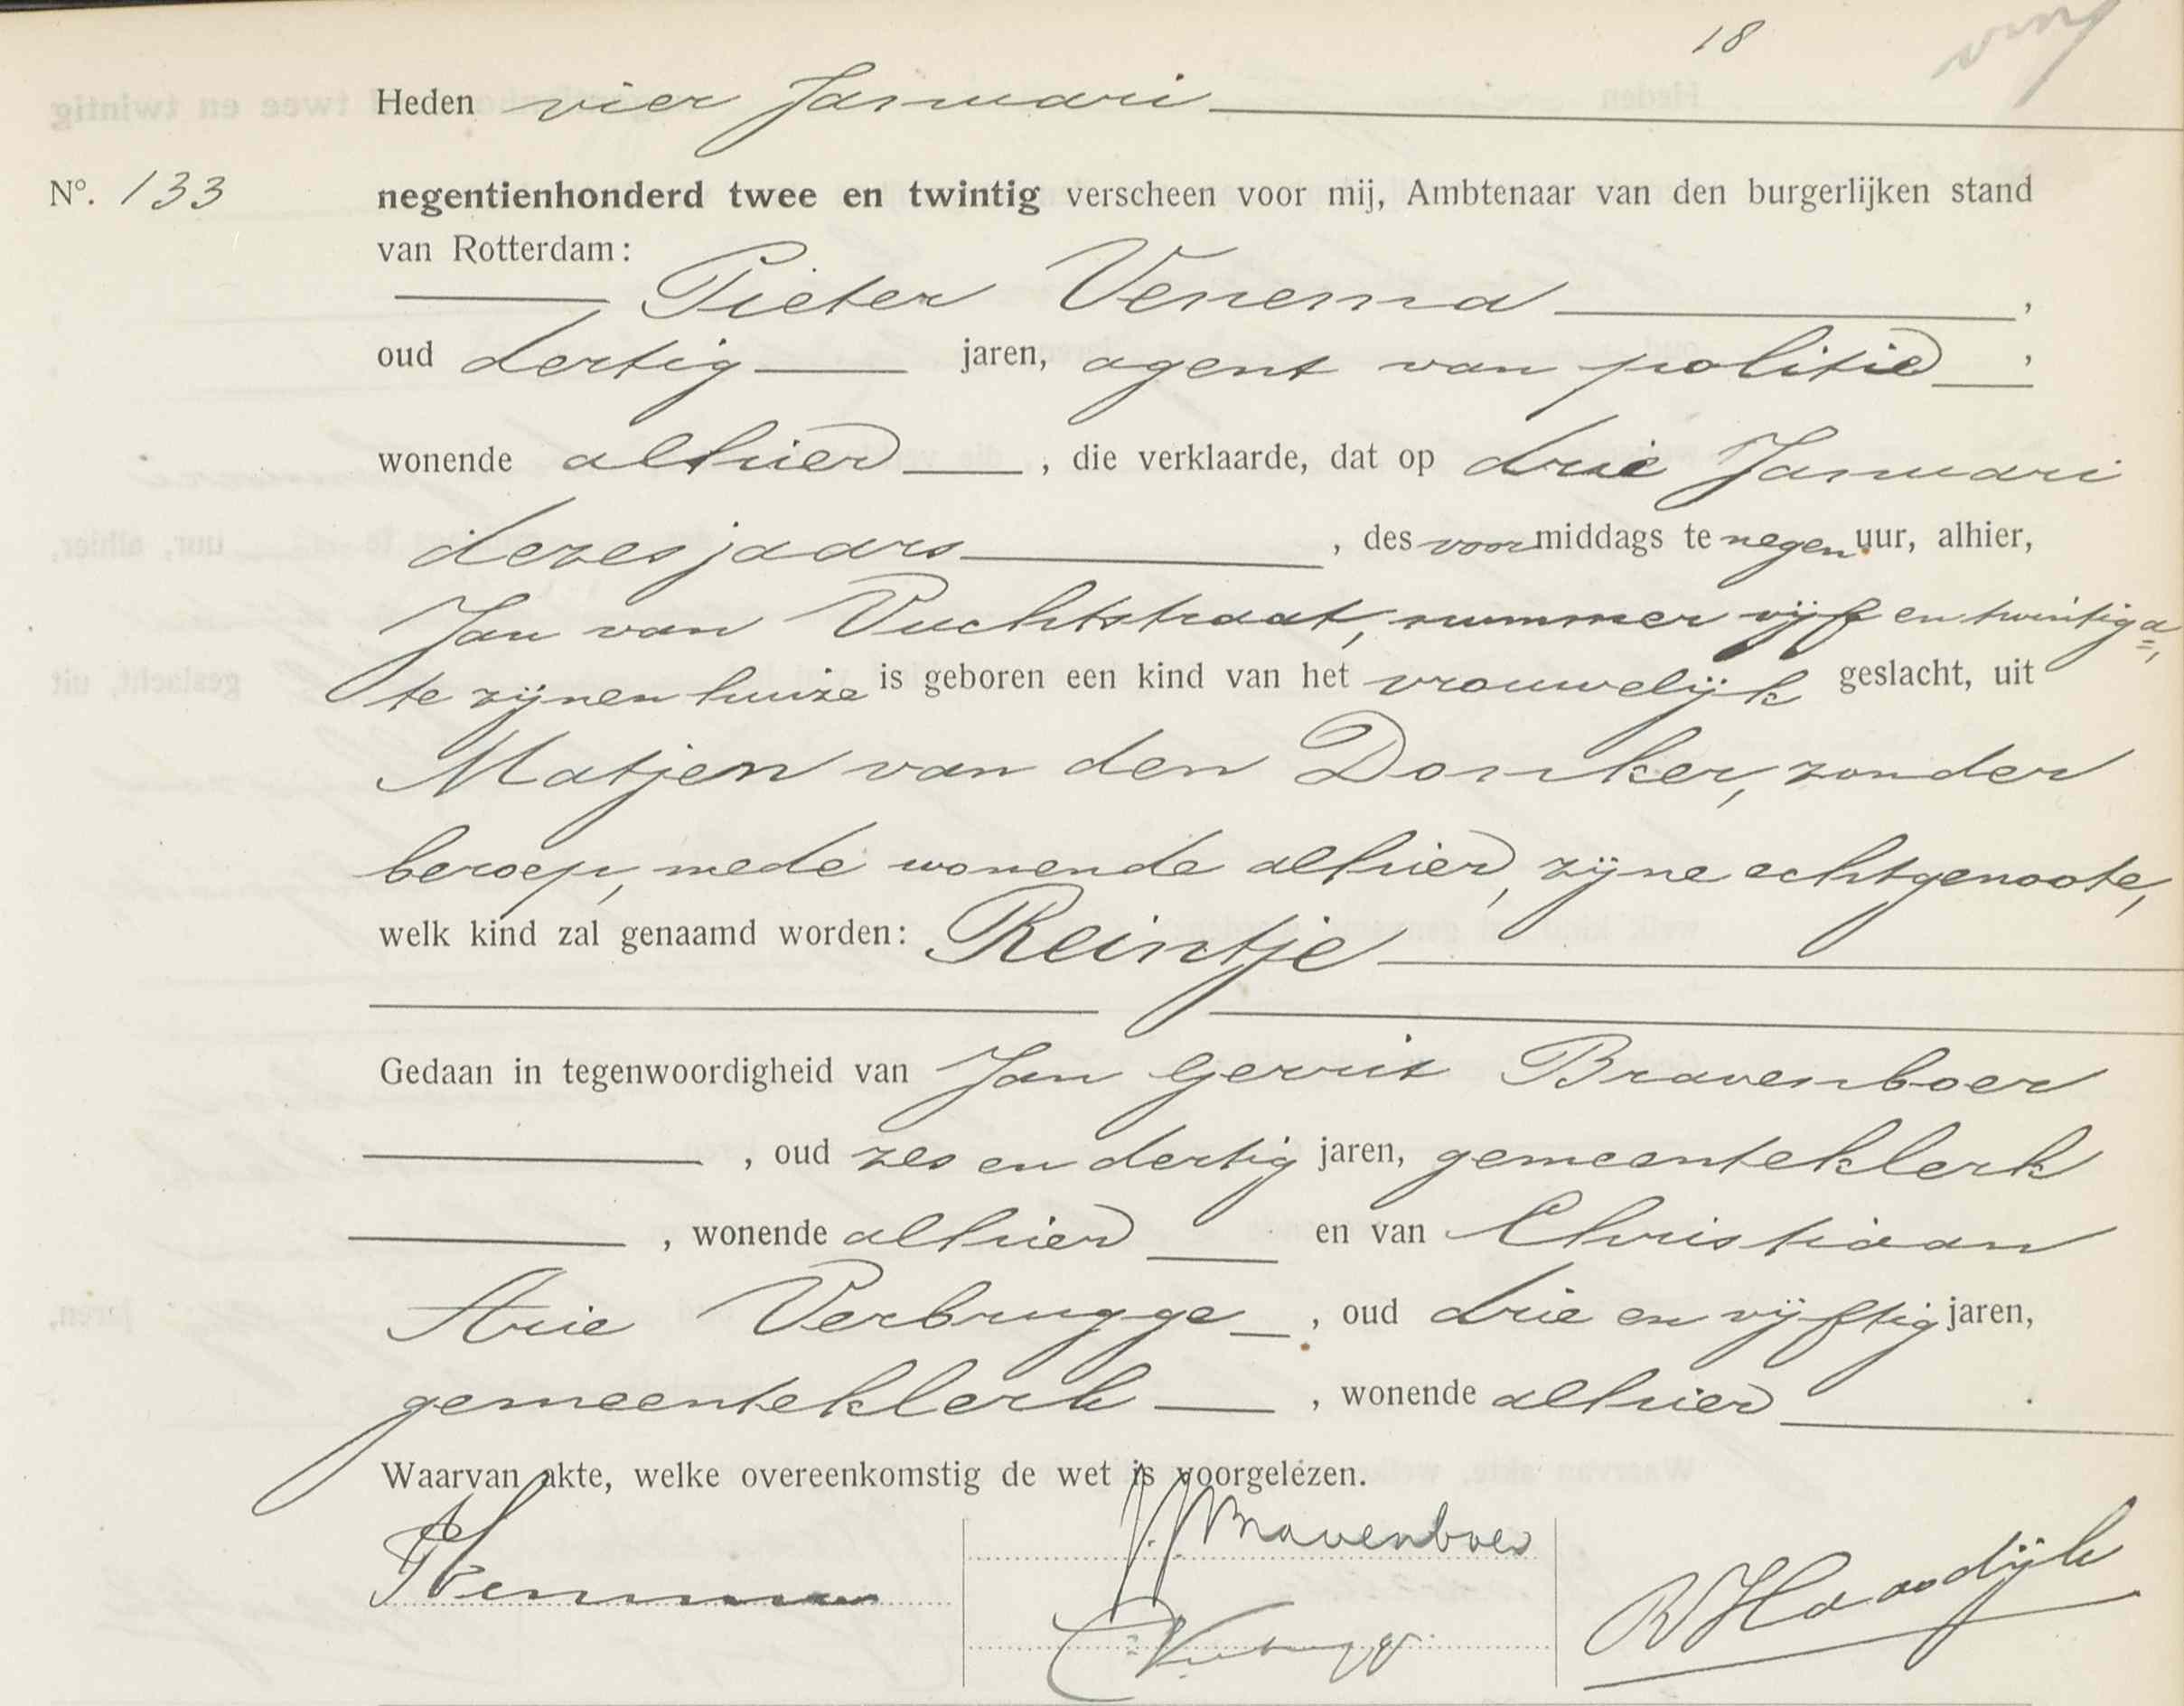 18
Heden vier Januari
Nº. 133 negentienhonderd twee en twintig verscheen voor mij, Ambtenaar van den burgerlijken stand
van Rotterdam:
Pieter Venema,
oud dertig jaren, agent van politie,
wonende alhier, die verklaarde, dat op drie Januari
dezes jaars, des voormiddags te negen uur, alhier,
Jan van Vuchtstraat, nummer vijf en twintig a,
te zijnen huize is geboren een kind van het vrouwelijk geslacht, uit
Matjen van den Donker, zonder
beroep, mede wonende alhier, zijne echtgenoote,
welk kind zal genaamd worden: Reintje
Gedaan in tegenwoordigheid van Jan Gerrit Bravenboer
, oud zes en dertig jaren, gemeenteklerk
, wonende alhier en van Christiaan
Arie Verbrugge, oud drie en vijftig jaren,
gemeenteklerk, wonende alhier.
Waarvan akte, welke overeenkomstig de wet is voorgelezen.
PVenema
J.G. Bravenboer